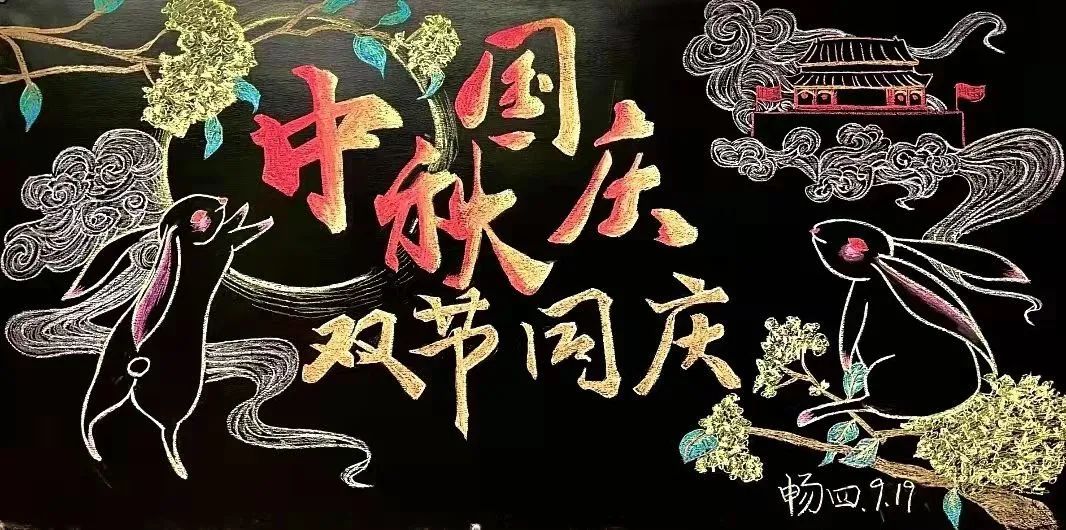 中秋
国庆
双节同庆
畅四.9.19